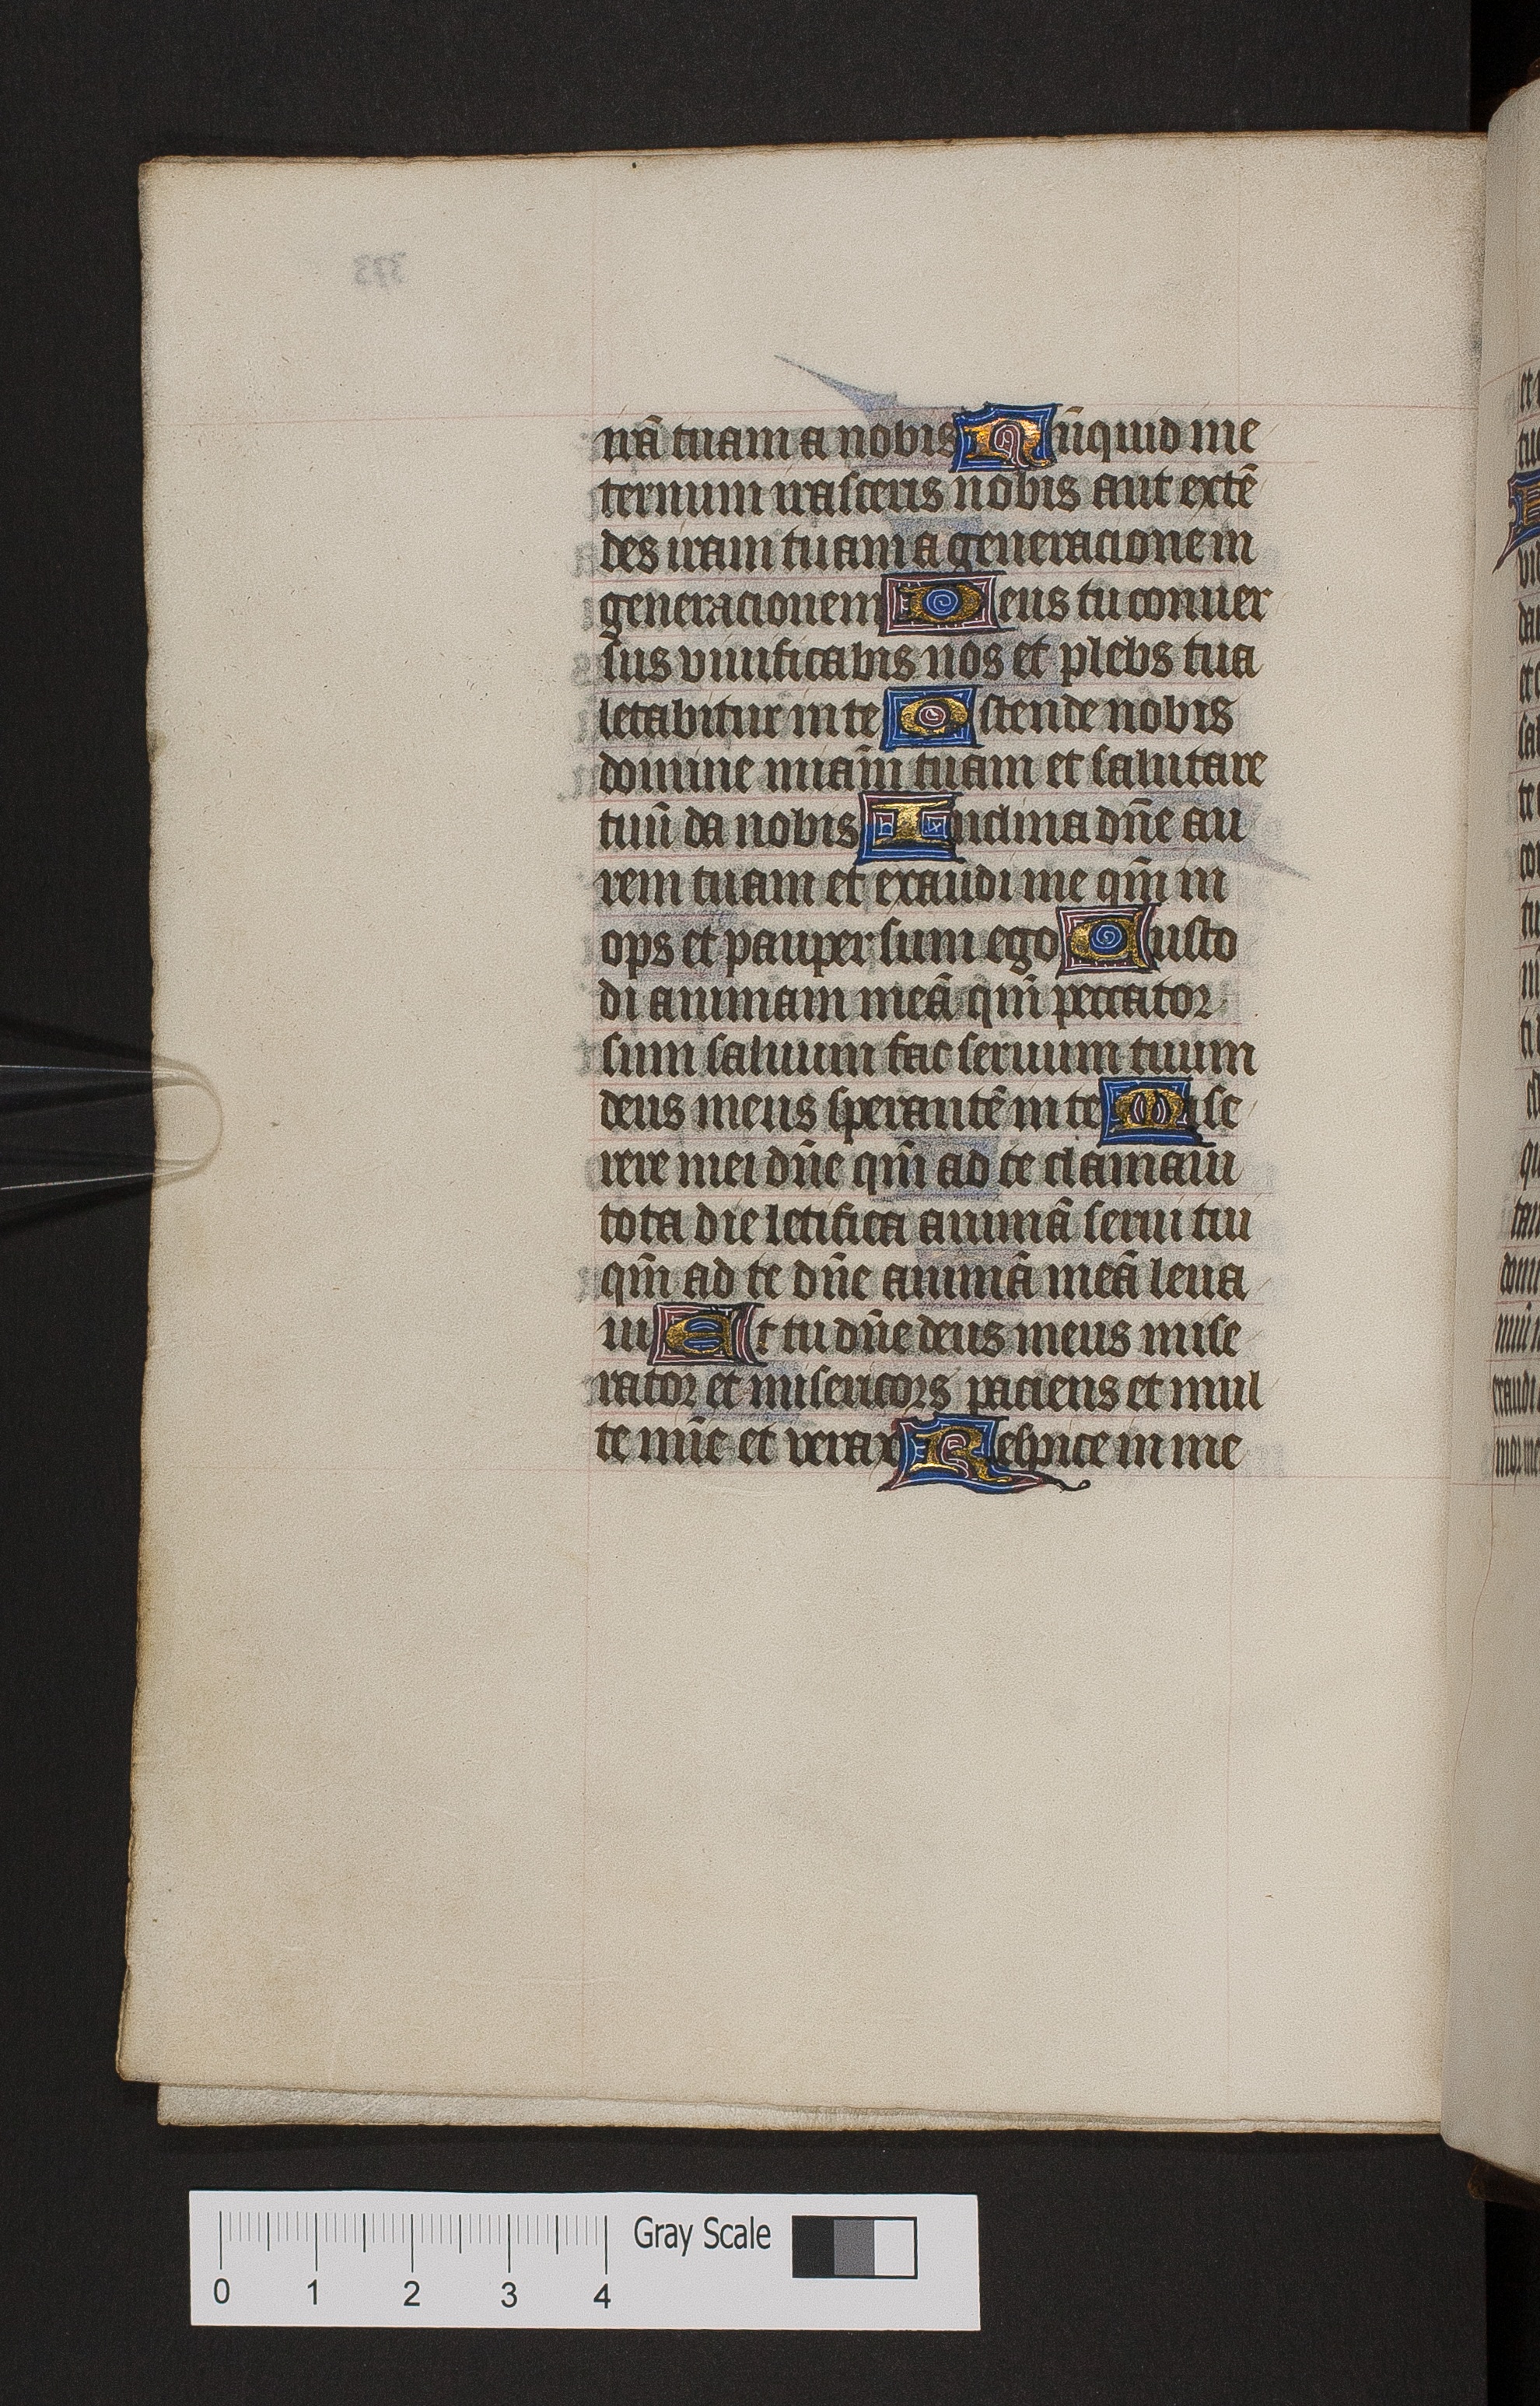 nrã tuam a nobis Nũquid me
ternum irasceris nobis aut extẽ
des iram tuam a generacione in
generacionem Deus tu conuer
sus viuificabis nos et plebs tua
letabitur in te Ostende nobis
domine miam̃ tuam et salutare
tuũ da nobis Inclina dñe au
rem tuam et exaudi me qm̃ in
ops et pauper sum ego Custo
di animam meã qm̃ peccator
sum saluum fac seruum tuum
deus meus sperantẽ in te Mise
rere mei dñe qm̃ ad te clamaui
tota die letifica animã serui tui
qm̃ ad te dñe animã meã leua
ui Et tu dñe deus meus mise
rator et misericors paciens et mul
te mĩe et verax Respice in me
373
Gray Scale
0 1 2 3 4